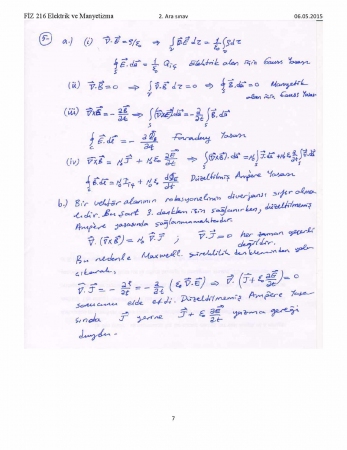 FİZ 216 Elektrik ve Manyetizma 2. Ara sınav 06.05.2015
5-) a.) (i) ∇⃗.E⃗ = ρ/ε₀ ⇒ ∫ ∇⃗.E⃗ dτ = 1/ε₀ ∫ ρ dτ
∮ E⃗.da⃗ = 1/ε₀ Qiç Elektrik alan için Gauss Yasası
(ii) ∇⃗.B⃗ = 0 ⇒ ∫ ∇⃗.B⃗ dτ = 0 ⇒ ∮ B⃗.da⃗ = 0 Manyetik
alan için Gauss Yasası
(iii) ∇⃗×E⃗ = -∂B⃗/∂t ⇒ ∫ (∇⃗×E⃗).da⃗ = -∂/∂t ∫ B⃗.da⃗
∮ E⃗.dl⃗ = - ∂Φ_B/∂t Faraday Yasası
(iv) ∇⃗×B⃗ = μ₀J⃗ + μ₀ε₀ ∂E⃗/∂t ⇒ ∫ (∇⃗×B⃗).da⃗ = μ₀ ∫ J⃗.da⃗ + μ₀ε₀ ∂/∂t ∫ E⃗.da⃗
∮ B⃗.dl⃗ = μ₀ + μ₀ε₀ Düzeltilmiş Ampere Yasası
b.) Bir vektör alanının rotasyonelinin diverjansı sıfır olma-
lıdır. Bu şart 3. denklem için sağlanırken, düzeltilmemiş
Ampere yasasında sağlanmamaktadır.
∇⃗.(∇⃗×B⃗) = μ₀ ∇⃗.J⃗ ; ∇⃗.J⃗ = 0 her zaman geçerli
değildir.
Bu nedenle Maxwell süreklilik denkleminden yola
çıkarak,
∇⃗.J⃗ = -∂ρ/∂t = -∂/∂t (ε₀ ∇⃗.E⃗) ⇒ ∇⃗.(J⃗ + ε₀ ∂E⃗/∂t) = 0
sonucunu elde etti. Düzeltilmemiş Ampere Yasa-
sında J⃗ yerine J⃗ + ε₀ ∂E⃗/∂t yazma gereği
duydu.
7